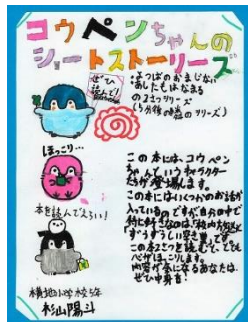 コウペンちゃんの
ショートストーリーズ
ぜひ
読んで!
よつばのおまじない
あしたもはなまる
の2さつ
シリーズ
ほっこり…
本を読んでえらい!
この本には、コウペン
ちゃんというキャラクター
たちが登場します。
この本にはいくつかのお話が
入っている
のですが自分の中で
特に好きなのは
この本2さつを読むと、とても
心がほっこりします。
内容が気になるあなたは、
ぜひ
小学校5年
杉山陽斗